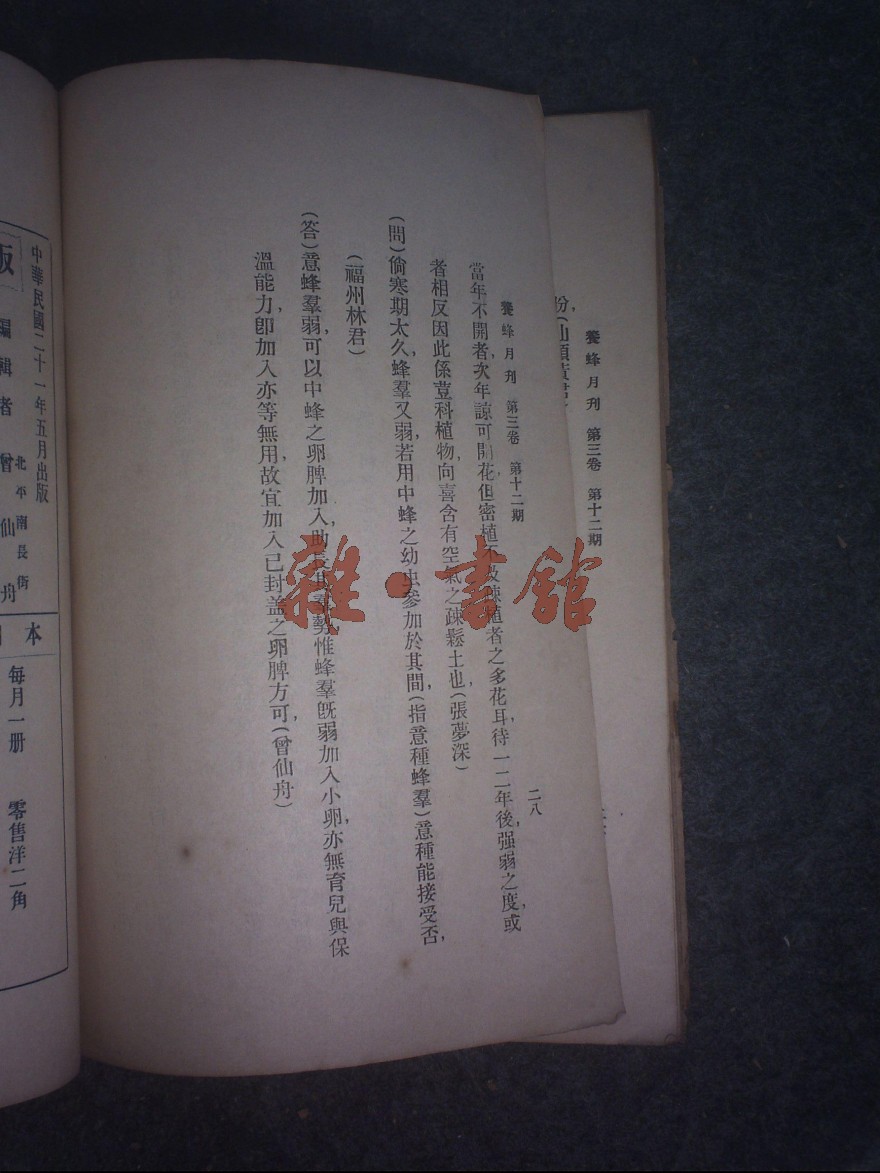 養蜂月刊 第三卷 第十二期
份,
養蜂月刊 第三卷 第十二期 二八
當年不開者,次年諒可開花,但密植不及疎植者之多花耳,待一二年後,强弱之度,或
者相反因此係荳科植物,向喜含有空氣之疎鬆土也,(張夢深)
(問)倘寒期太久,蜂羣又弱,若用中蜂之幼虫參加於其間,(指意種蜂羣)意種能接受否,
(福州林君)
(答)意蜂羣弱,可以中蜂之卵脾加入,助長其羣勢,惟蜂羣旣弱加入小卵,亦無育兒與保
溫能力,卽加入亦等無用,故宜加入已封盖之卵脾方可,(曾仙舟)
中華民國二十一年五月出版
版
編輯者 曾仙舟
北平南長街
本
每月一册 零售洋二角
雜·書館